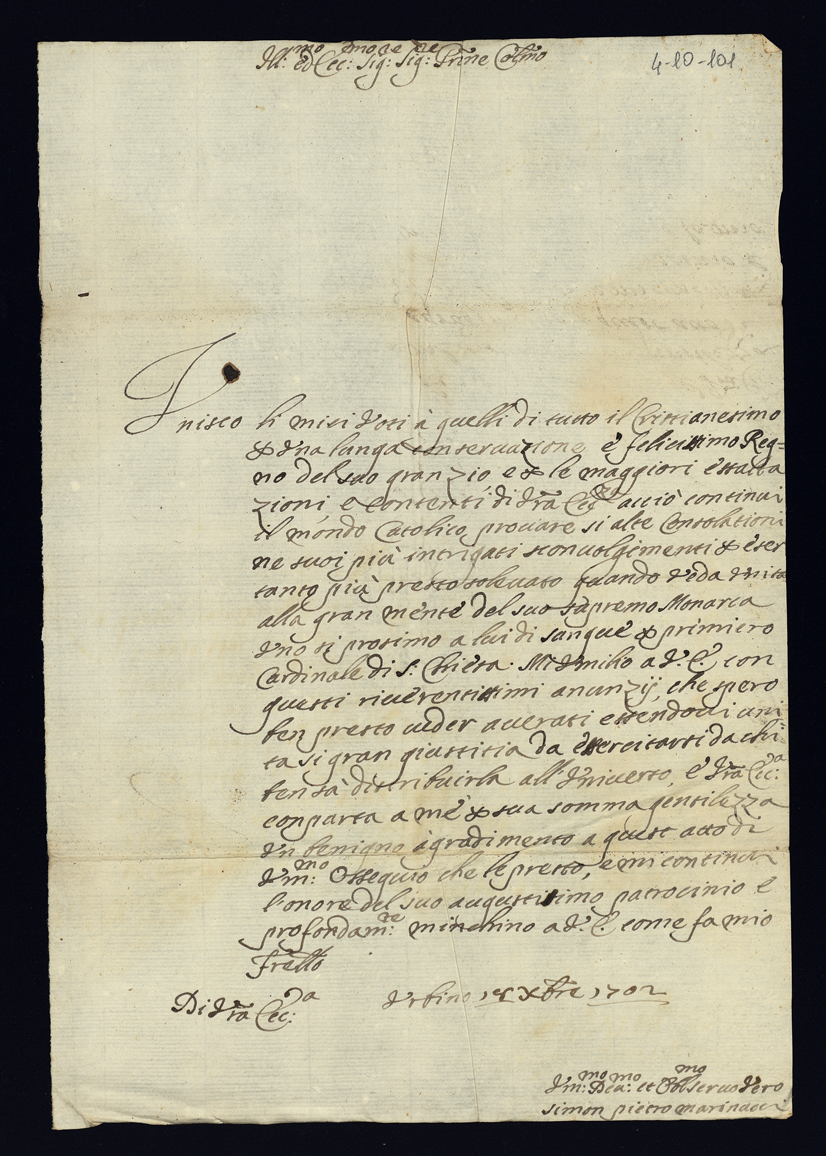 Ill:mo ed Ecc:mo Sig:re Sig:re Prne Colmo
4-10-101
Vnisco li miei Voti à quelli di tutto il Cristianesimo
& Vna lunga conseruazione, e felicissimo Reg=
no del suo gran Zio e & le maggiori essalta
zioni e contenti di Vra Ecc:za acciò continui
il mondo Catolico prouare si alte Consolationi
ne suoi più intrigati sconuolgimenti & esser
tanto più presto soleuato quando Veda Vnita
alla gran mente del suo supremo Monarca
Vno si prosimo a lui di sangue & primiero
Cardinale di S. Chiesa. M'Vmilio a V.E. con
questi riuerentissimi anunzij, che spero
ben presto ueder auerati essendoui uni
ta si gran giustitia da essercitarsi da chi
ben sà distribuirla all'Vniuerso, e Vra Ecc:a
comparta a me & sua somma gentilezza
Vn benigno agradimento a quest atto di
Vm:mo Ossequio che le presto, e mi continui
l'onore del suo augustissimo patrocinio e
profondam:te m'inchino a V.E. come fa mio
Frallo
Di Vra Ecc:a Vrbino Xbre 1702
Vm:mo Deu:mo et Obl:mo seruo Vero
Simon pietro marinucci